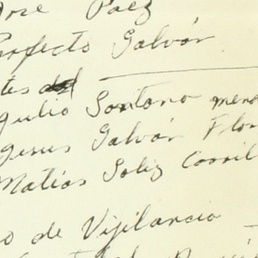 José Páez
Perfecto Galván
tes del
Julio Santana mend
Jesus Galván Flor
Matias Soliz Carril
o de Vijilancia